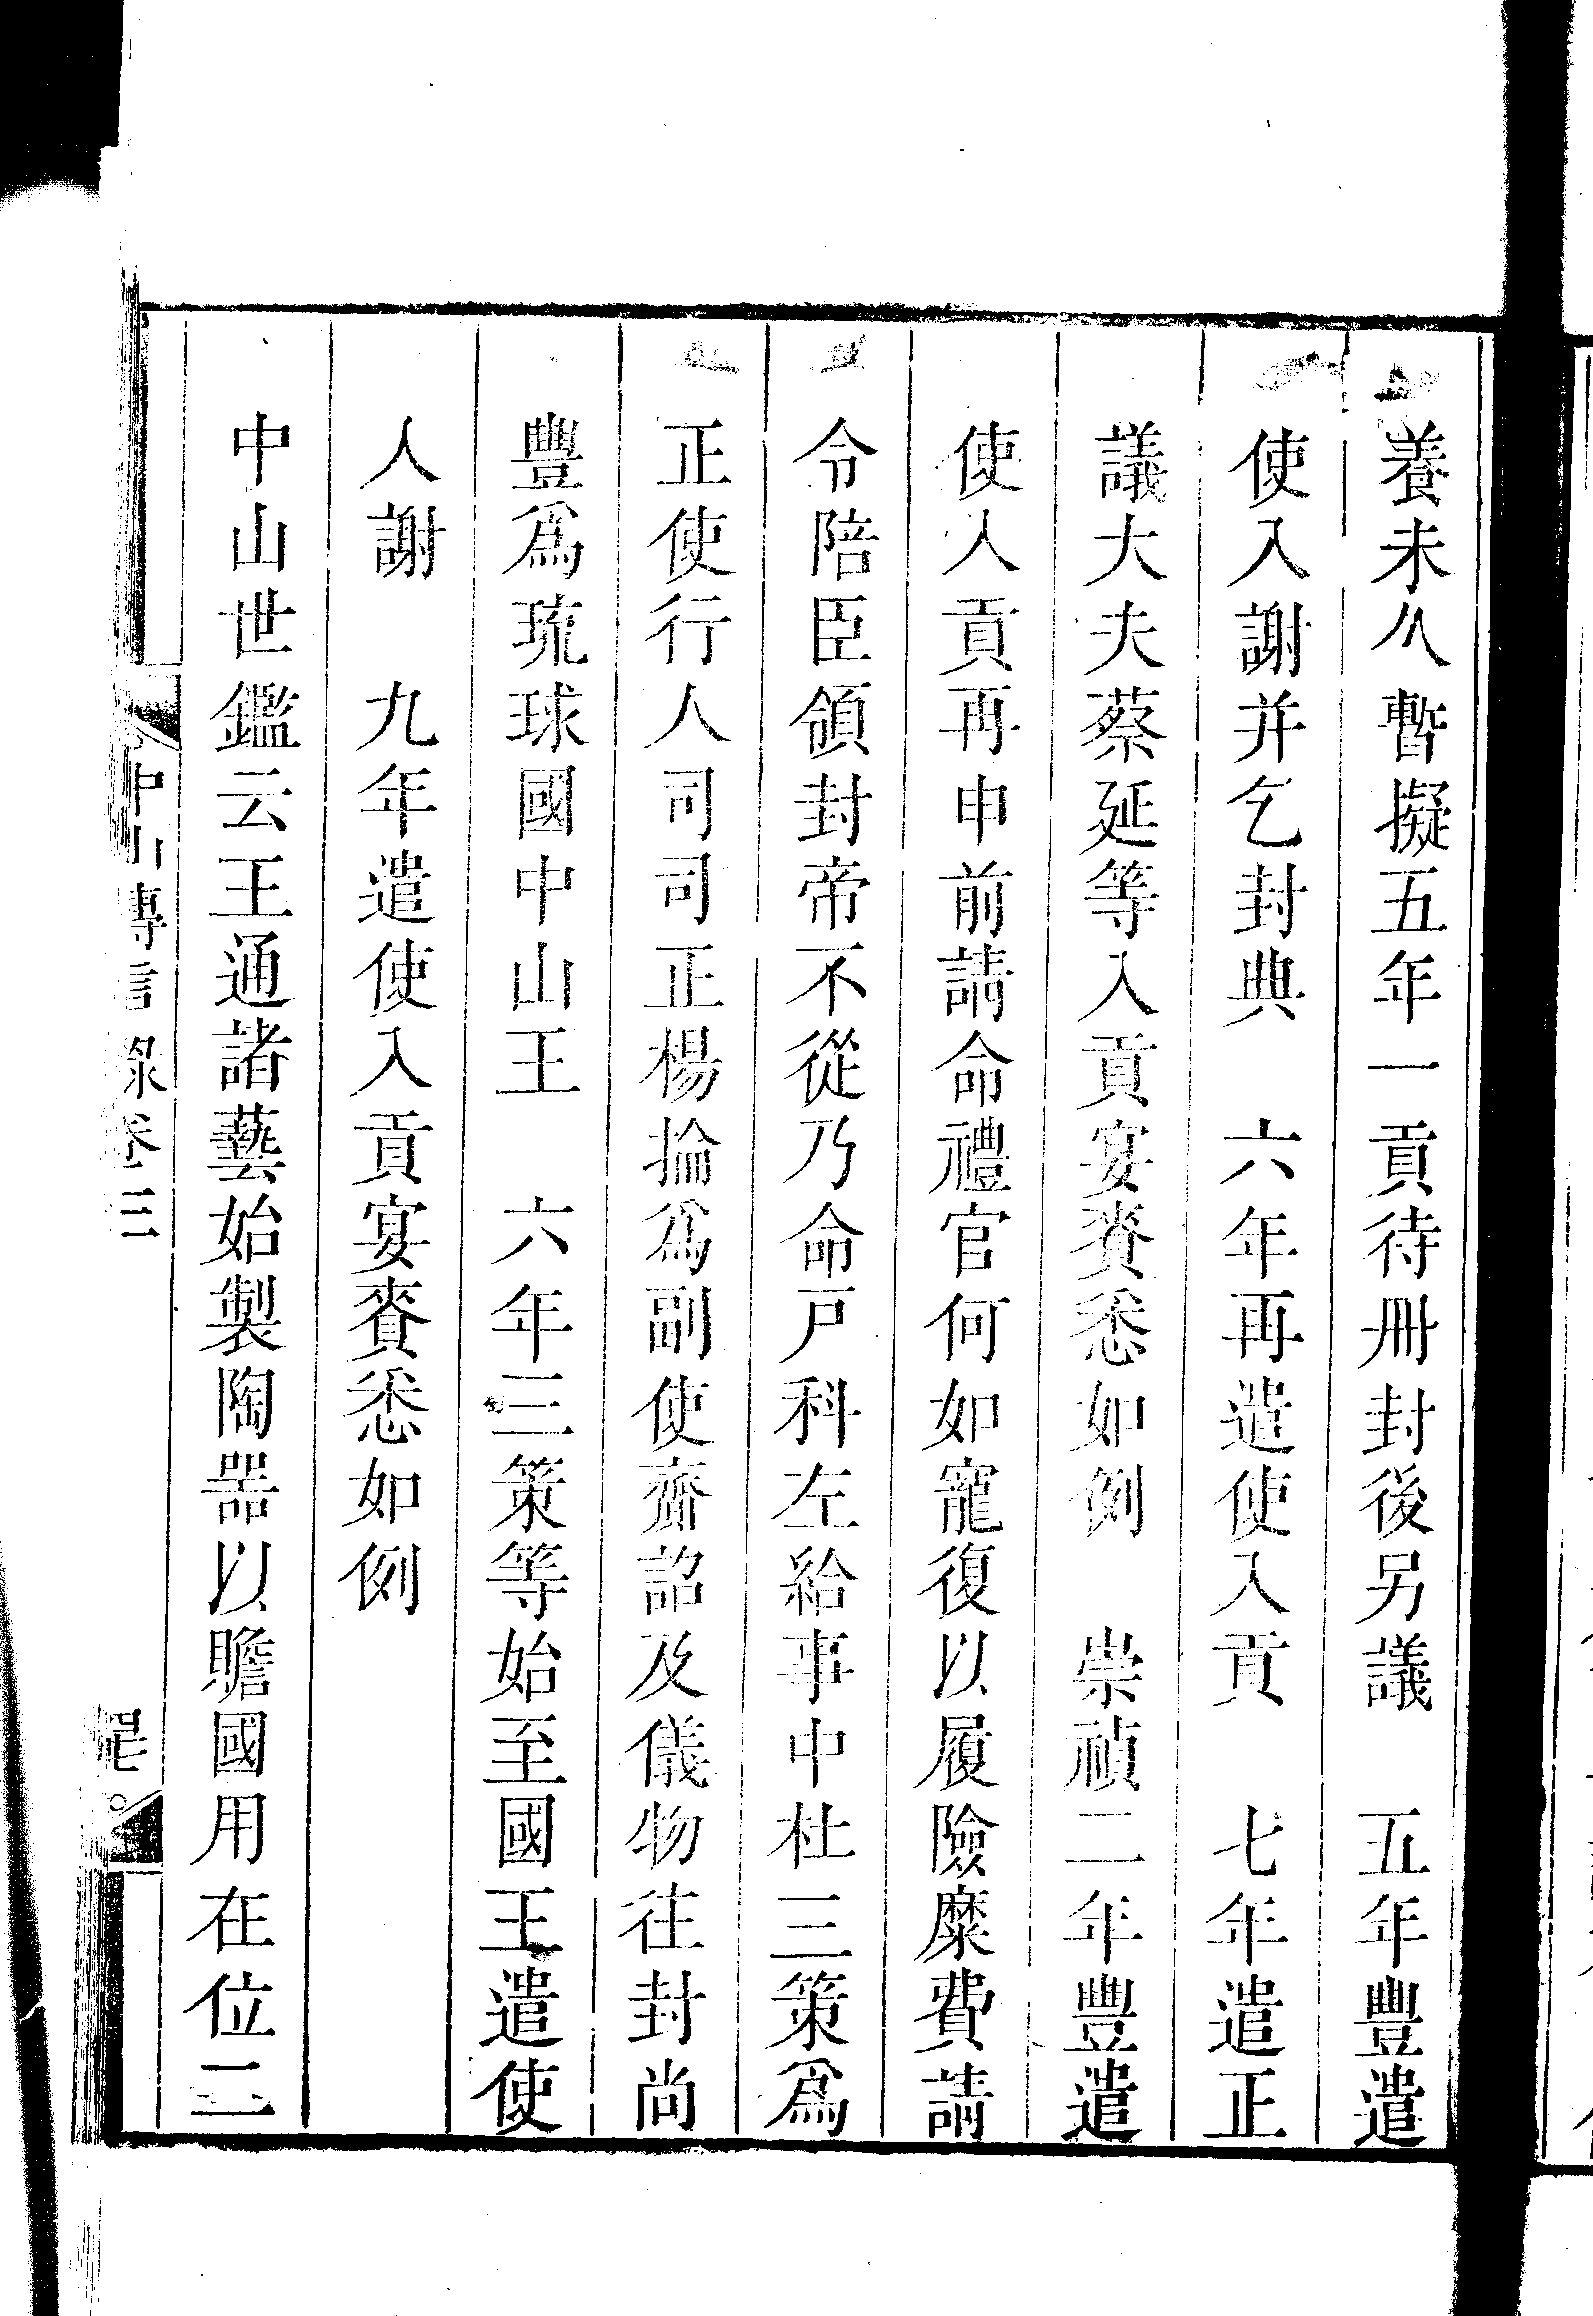 養未久暫擬五年一貢待冊封後另議　五年豐遣
使入謝并乞封典　六年再遣使入貢　七年遣正
議大夫蔡延等入貢宴賚悉如例　崇禎二年豐遣
使入貢再申前請命禮官何如寵復以履險糜費請
令陪臣領封帝不從乃命戸科左給事中杜三策爲
正使行人司司正楊掄爲副使齎詔及儀物往封尚
豐爲琉球國中山王　六年三策等始至國王遣使
人謝　九年遣使入貢宴賚悉如例
中山世鑑云王通諸藝始製陶器以贍國用在位二
中山傳信錄卷三